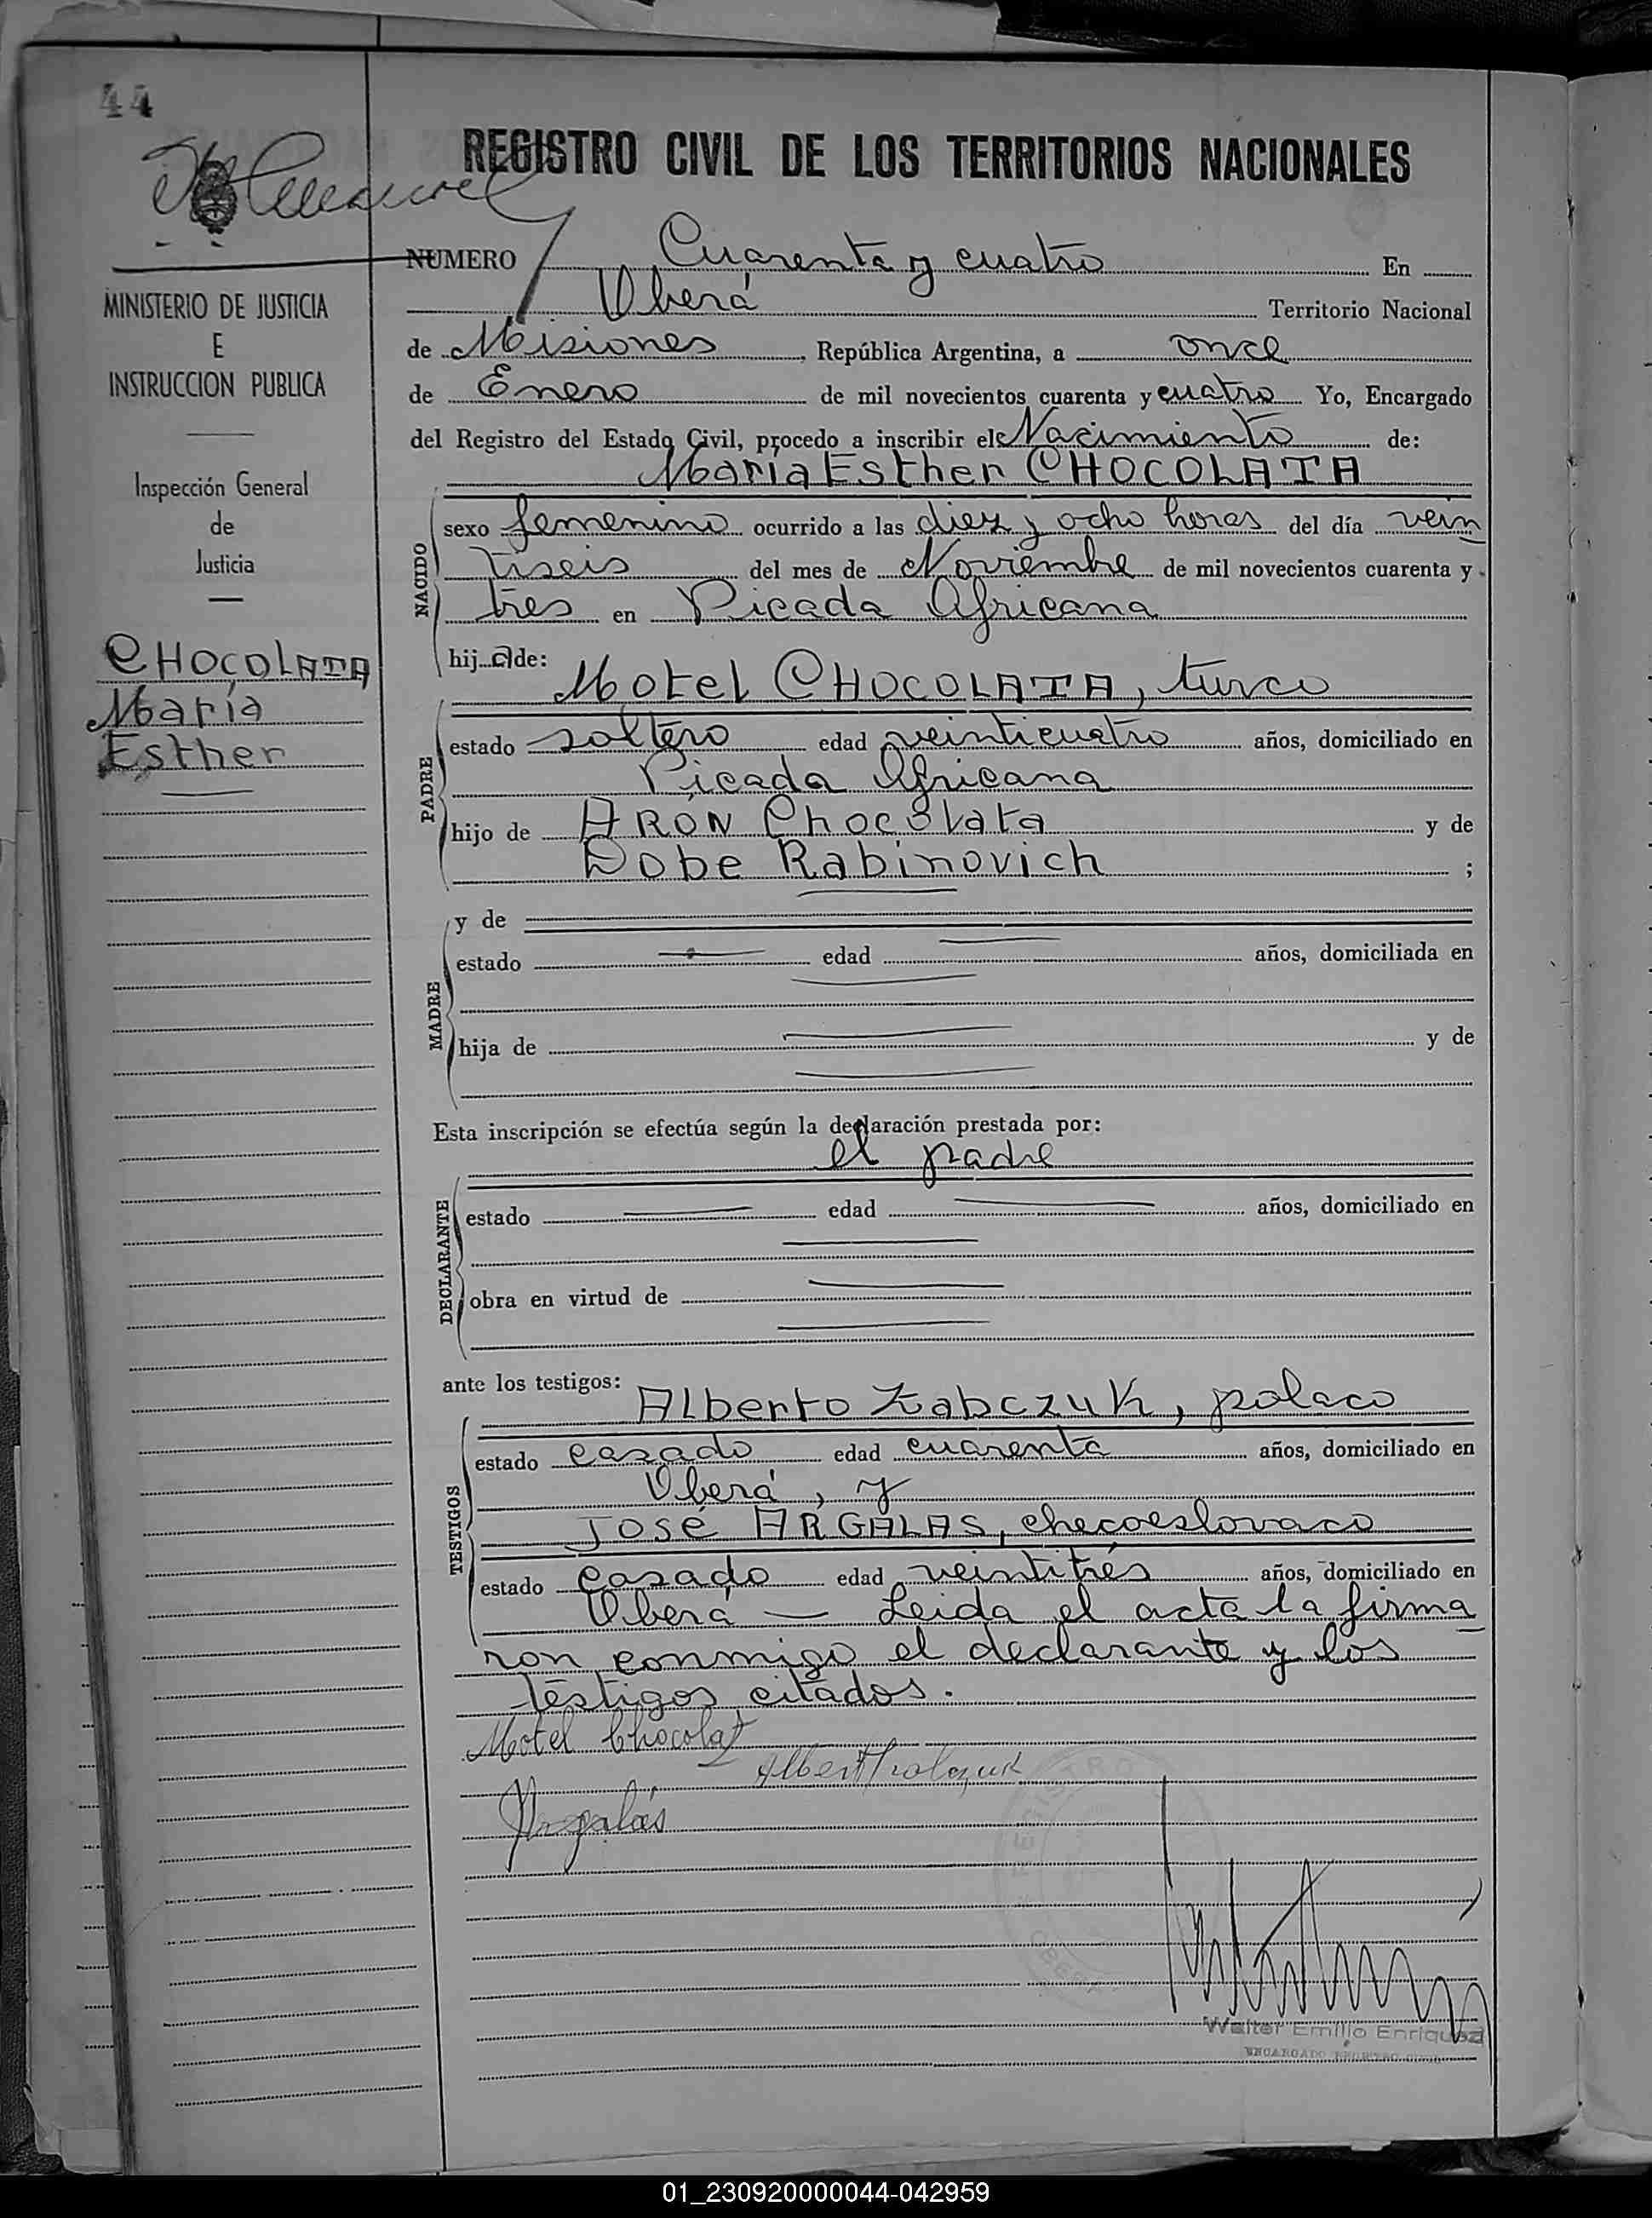 44
REGISTRO CIVIL DE LOS TERRITORIOS NACIONALES
MINISTERIO DE JUSTICIA
E
INSTRUCCION PUBLICA
Inspección General
de
Justicia
CHOCOLATA
María
Esther
NUMERO Cuarenta y cuatro En
Oberá Territorio Nacional
de Misiones, República Argentina, a once
de Enero de mil novecientos cuarenta y cuatro Yo, Encargado
del Registro del Estado Civil, procedo a inscribir el Nacimiento de:
María Esther CHOCOLATA
NACIDO
sexo femenino ocurrido a las diez y ocho horas del día vein
tiseis del mes de Noviembre de mil novecientos cuarenta y
tres en Picada Africana
hija de:
Motel CHOCOLATA, turco
PADRE
estado soltero edad veinticuatro años, domiciliado en
Picada Africana
hijo de ARÓN Chocolata y de
Dobe Rabinovich ;
MADRE
y de
estado edad años, domiciliada en
hija de y de
Esta inscripción se efectúa según la declaración prestada por:
el padre
DECLARANTE
estado edad años, domiciliado en
obra en virtud de
ante los testigos:
Alberto Zabczuk, polaco
TESTIGOS
estado casado edad cuarenta años, domiciliado en
Oberá, y
José ARGALAS, checoeslovaco
estado casado edad veintitrés años, domiciliado en
Oberá — Leida el acta la firma
ron conmigo el declarante y los
testigos citados.
Motel Chocolat
Argalás
REGISTRO
Walter Emilio Enriquez
ENCARGADO REGISTRO CIVIL
01_230920000044-042959